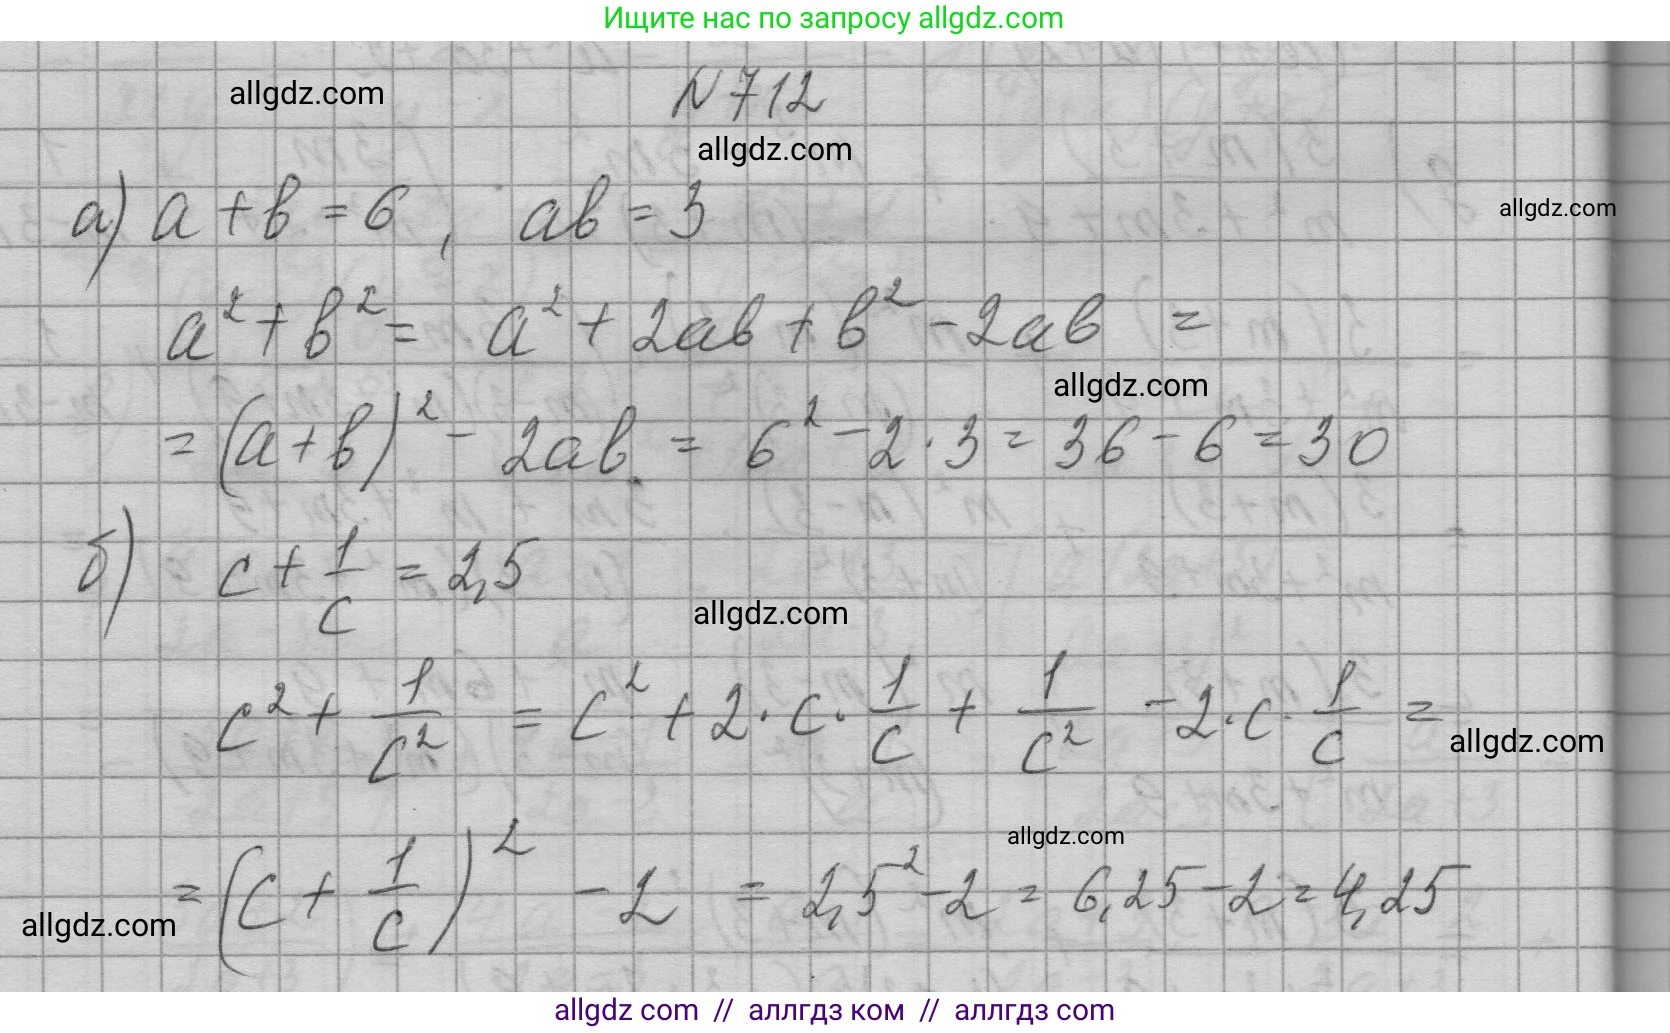 Ищите нас по запросу allgdz.com
allgdz.com
№712
allgdz.com
а) a + b = 6 , ab = 3
allgdz.com
a² + b² = a² + 2ab + b² - 2ab =
allgdz.com
= (a + b)² - 2ab = 6² - 2 · 3 = 36 - 6 = 30
б) c + 1/c = 2,5
allgdz.com
c² + 1/c² = c² + 2 · c · 1/c + 1/c² - 2 · c · 1/c =
allgdz.com
allgdz.com
= (c + 1/c)² - 2 = 2,5² - 2 = 6,25 - 2 = 4,25
allgdz.com
allgdz com // аллгдз ком // аллгдз com